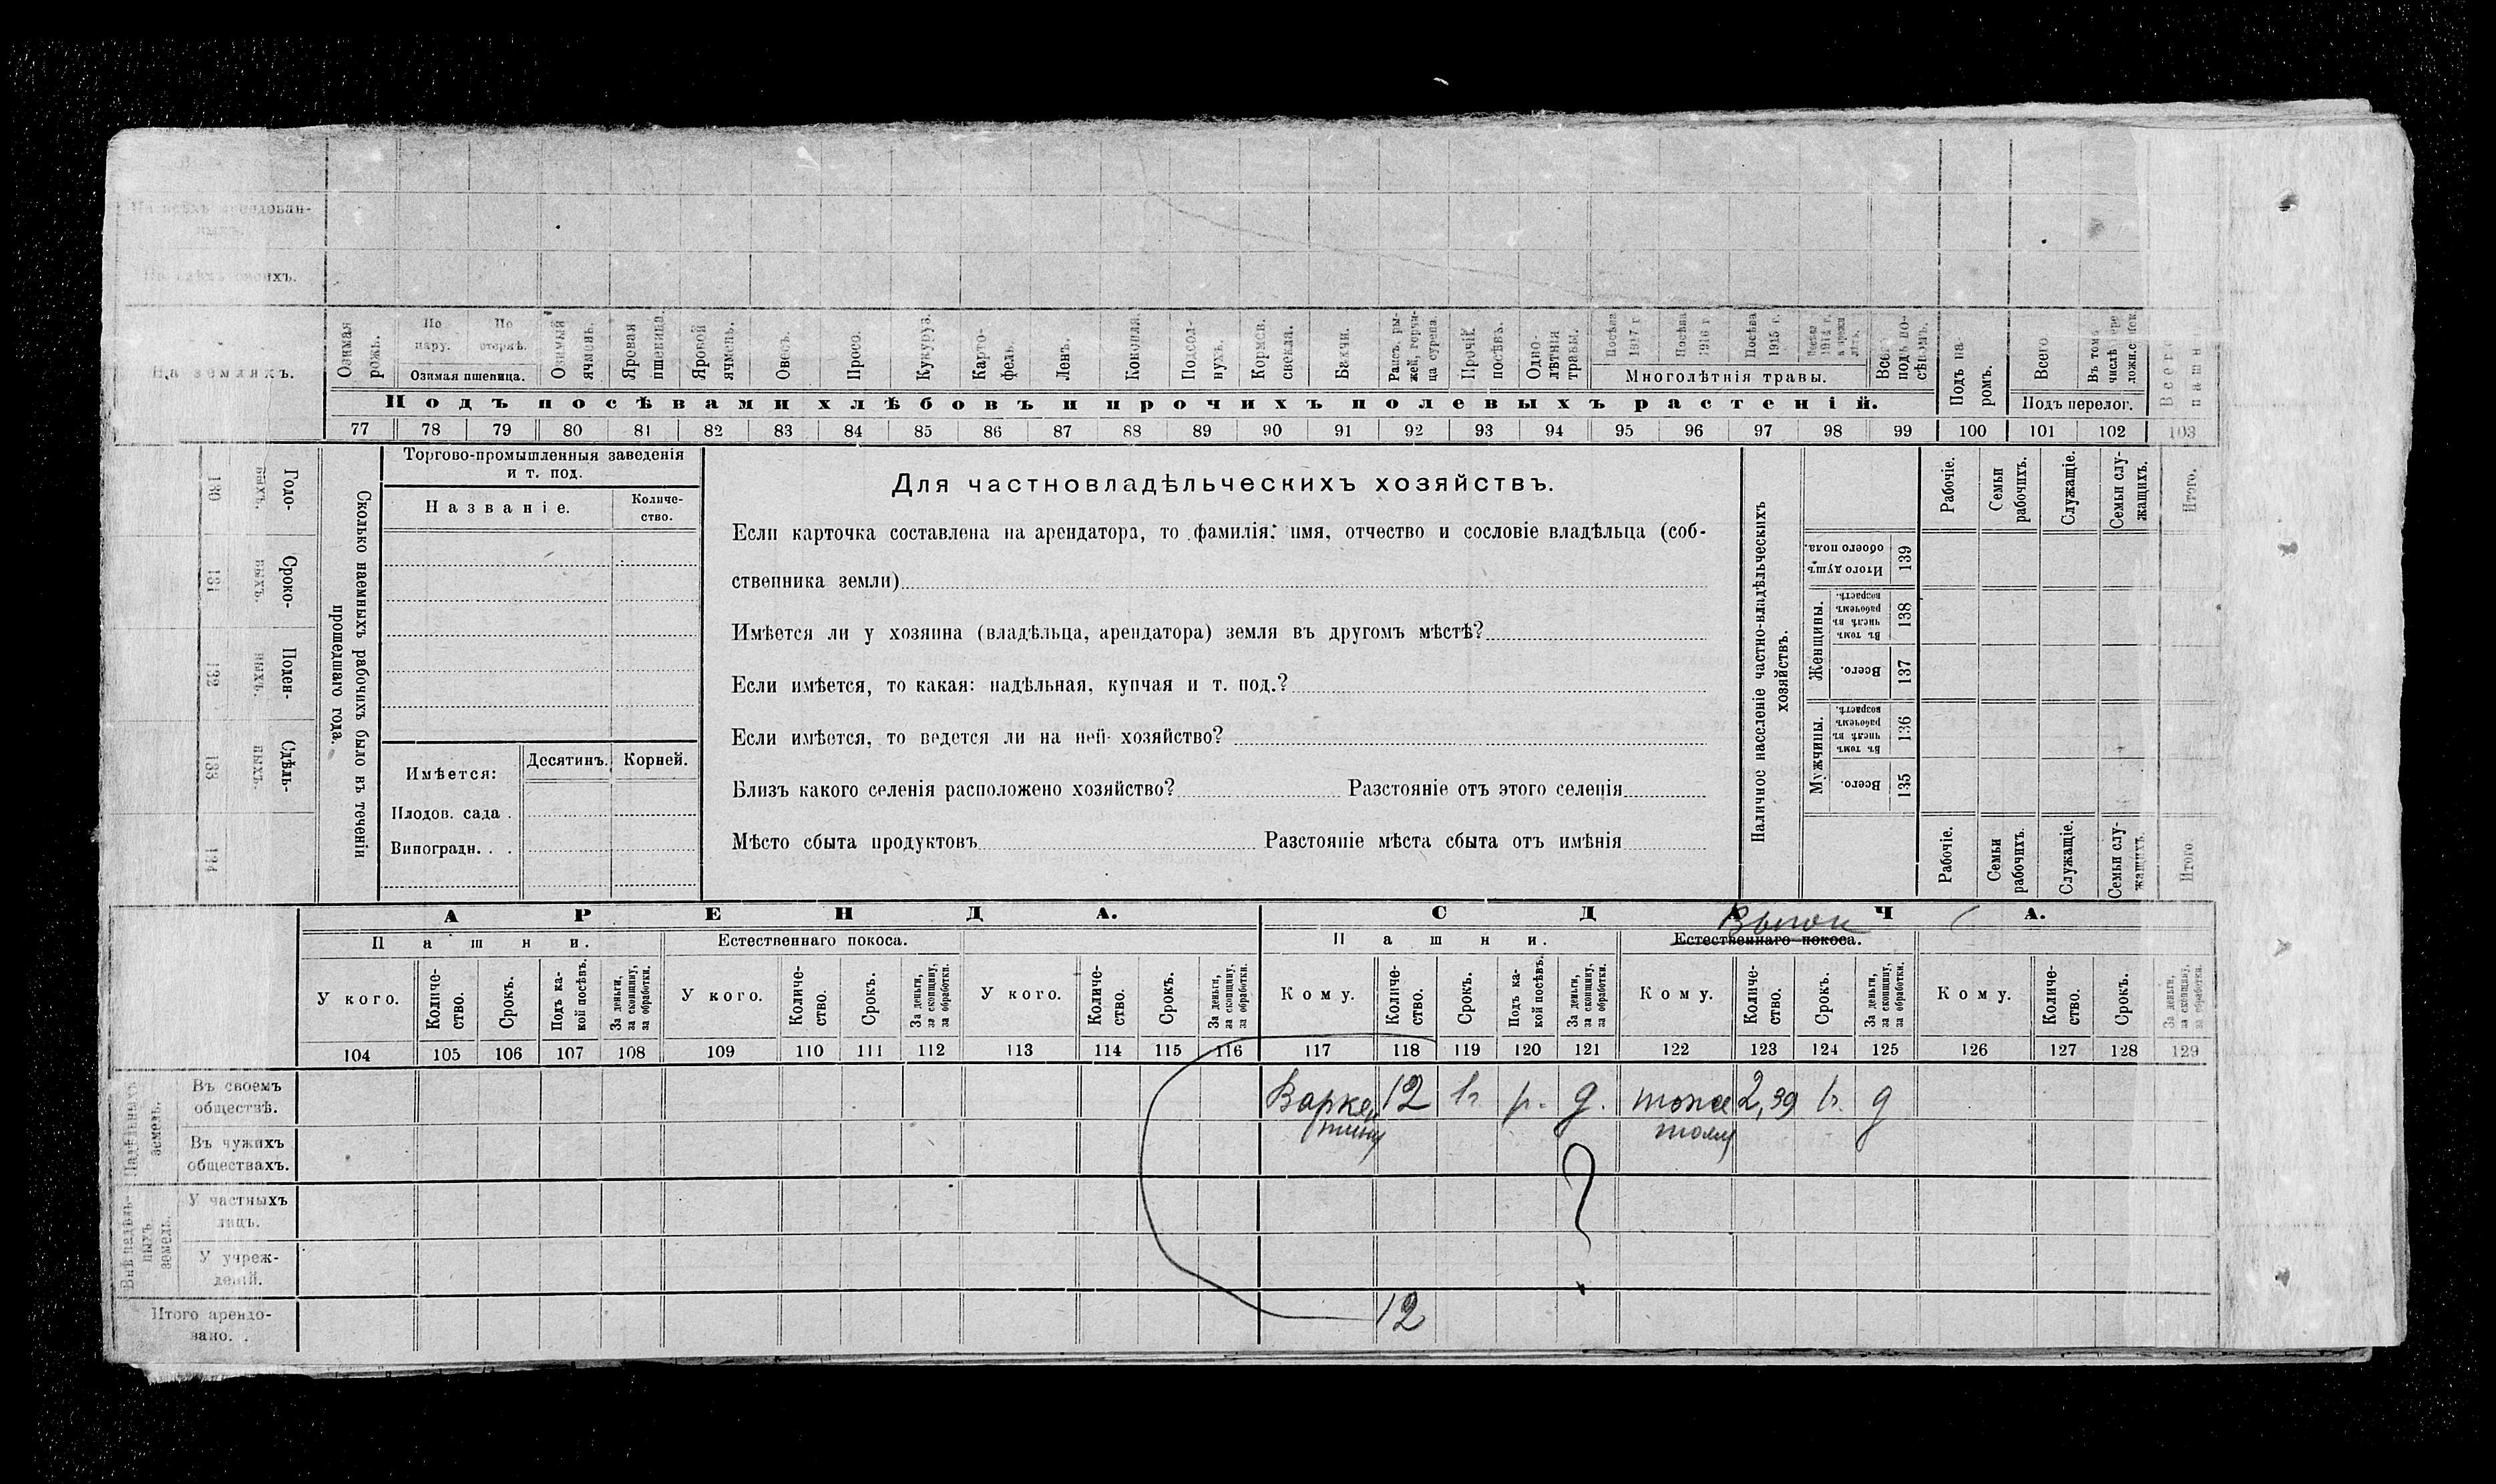 На всѣхъ арендован-
ныхъ.
На всѣхъ своихъ.
На земляхъ.
Озимая рожь.
По пару.
По стернѣ.
Озимая пшеница.
Озимый ячмень.
Яровая пшеница.
Яровой ячмень.
Овесъ.
Просо.
Кукуруз.
Карто-
фель.
Ленъ.
Конопля.
Подсол-
нухъ.
Кормов.
свекла.
Бахчи.
Рапсъ, ры-
жей, горчи-
ца сурепа.
Прочій посѣвъ.
Одно-
лѣтнія травы.
Посѣва 1917 г.
Посѣва 1916 г.
Посѣва 1915 г.
Посѣва 1914 г. и прежн. лѣтъ.
Многолѣтнія травы.
Всего подъ по-
сѣвомъ.
Подъ па
ромъ.
Всего
Въ томъ числѣ
Подъ перелог.
Всего пашни
Подъ посѣвами хлѣбовъ и прочихъ полевыхъ растеній.
77 78 79 80 81 82 83 84 85 86 87 88 89 90 91 92 93 94 95 96 97 98 99 100 101 102 103
Сколько наемныхъ рабочихъ было въ теченіи
прошедшаго года.
Годо-
выхъ. 130
Сроко-
ныхъ. 131
Поден-
ныхъ. 132
Сдѣль-
ныхъ. 133
134
Торгово-промышленныя заведенія
и т. под.
Названіе.
Количе-
ство.
Имѣется:
Десятинъ.
Корней.
Плодов. сада .
Виноградн. . .
Для частновладѣльческихъ хозяйствъ.
Если карточка составлена на арендатора, то фамилія, имя, отчество и сословіе владѣльца (соб-
ственника земли)
Имѣется ли у хозяина (владѣльца, арендатора) земля въ другомъ мѣстѣ?
Если имѣется, то какая: надѣльная, купчая и т. под.?
Если имѣется, то ведется ли на ней хозяйство?
Близъ какого селенія расположено хозяйство? Разстояніе отъ этого селенія
Мѣсто сбыта продуктовъ Разстояніе мѣста сбыта отъ имѣнія
Наличное населеніе частно-владѣльческихъ
хозяйствъ.
Рабочіе.
Семьи рабочихъ.
Служащіе.
Семьи слу-
жащихъ.
Итого.
Итого душъ обоего пола. 139
Женщины.
Въ томъ числѣ въ рабочемъ возрастѣ. 138
Всего. 137
Мужчины.
Въ томъ числѣ въ рабочемъ возрастѣ. 136
Всего. 135
Рабочіе.
Семьи рабочихъ.
Служащіе.
Семьи слу-
жащихъ.
Итого.
АРЕНДА.
СДАЧА.
Пашни.
Естественнаго покоса.
Пашни.
Выгон
Естественнаго покоса.
У кого.
Количе-
ство.
Срокъ.
Подъ ка-
кой посѣвъ.
За деньги,
за скопщину,
за обработки.
У кого.
Количе-
ство.
Срокъ.
За деньги,
за скопщину,
за обработки.
У кого.
Количе-
ство.
Срокъ.
За деньги,
за скопщину,
за обработки.
Кому.
Количе-
ство.
Срокъ.
Подъ ка-
кой посѣвъ.
За деньги,
за скопщину,
за обработки.
Кому.
Количе-
ство.
Срокъ.
За деньги,
за скопщину,
за обработки.
Кому.
Количе-
ство.
Срокъ.
За деньги,
за скопщину,
за обработки.
104 105 106 107 108 109 110 111 112 113 114 115 116 117 118 119 120 121 122 123 124 125 126 127 128 129
Надѣльныхъ земель.
Въ своемъ
обществѣ.
12 1г. р. д. тоже 2,39 1г. д
тому
Въ чужихъ
обществахъ.
?
Внѣ надѣль-
ныхъ земель.
У частныхъ
лицъ.
У учреж-
деній.
Итого арендо-
вано. .
12